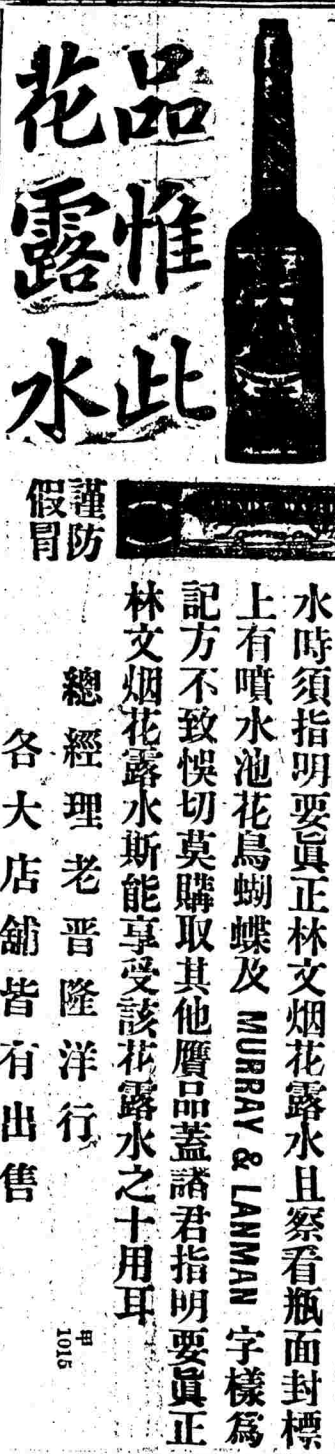 品惟此
花露水
謹防
假冒
水時須指明要眞正林文烟花露水且察看瓶面封標
上有噴水池花鳥蝴蝶及 MURRAY & LANMAN 字樣爲
記方不致悞切莫購取其他贋品蓋諸君指明要眞正
林文烟花露水斯能享受該花露水之十用耳
總經理老晋隆洋行
各大店舖皆有出售
甲
1015